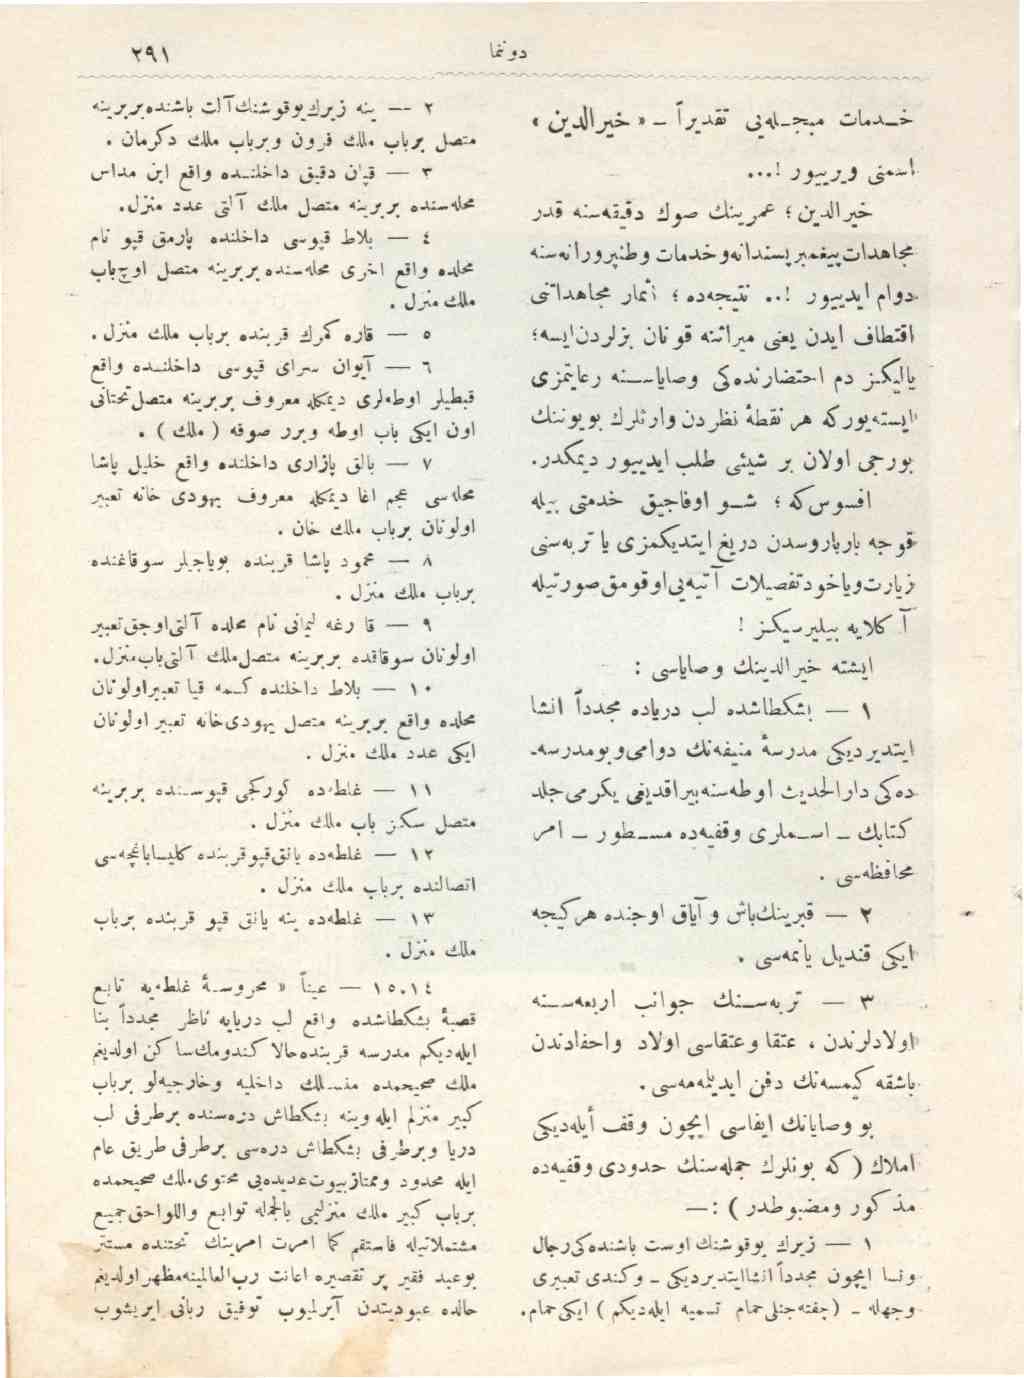 دوننما
٢٩١
خـدمات مبجـله‌یی تقدیراً ـ « خیرالدین »
اسمنی ویرییور !...
خیرالدین ؛ عمرینك صوك دقیقه‌سنه قدر
مجاهدات پیغمبر پسندانه و خدمات وطنپرورانه‌سنه
دوام ایدییور !.. نتیجه‌ده ؛ اثمار مجاهداتنی
اقتطاف ایدن یعنی میراثنه قونان بزلردن ایسه؛
یالیكـز دم احتضارنده‌كی وصایاسـنه رعایتمزی
ایسته‌یوركه هر نقطهٔ نظردن وارثلرك بویوننك
بورجی اولان بر شیئی طلب ایدییور دیمكدر.
افسوس‌كه ؛ شـو اوفاجیق خدمتی بیله
قوجه بارباروسدن دریغ ایتدیكمزی یا تربه‌سنی
زیارت ویاخود تفصیلات آتیه‌یی اوقومق صورتیله
آ كلایه بیلیرسیكـز !
ایشته خیرالدینك وصایاسی :
١ — بشكطاشده لب دریاده مجدداً انشا
ایتدیردیكی مدرسهٔ منیفه‌نك دوامی و بو مدرسه‌ـ
ده‌كی دارالحدیث اوطه‌سنه بیراقدیغی یكرمی جلد
كتابك ـ اسـملری وقفیه‌ده مسـطور ـ امر
محافظه‌سی .
٢ — قبرینك باش و آیاق اوجنده هر كیجه
ایكی قندیل یانمه‌سی .
٣ — تربه‌سـنك جوانب اربعه‌سـنه
اولادلرندن ، عتقا وعتقاسی اولاد واحفادندن
باشقه كیمسه‌نك دفن ایدیلمه‌مه‌سی.
بو وصایانك ایفاسی ایچون وقف أیله‌دیكی
املاك ( كه بونلرك جمله‌سنك حدودی وقفیه‌ده
مذ كور و مضبوطدر ) : —
١ — زیرك یوقوشنك اوست باشنده‌كی رجال
ونسا ایچون مجدداً انشا ایتدیردیكی ـ وكندی تعبیری
وجهله ـ (چفته‌جنلی حمام تسمیه ایله‌دیكم ) ایكی حمام.
٢ — ینه زیرك یوقوشنك آلت باشنده بربرینه
متصل برباب ملك فرون وبرباب ملك دكرمان .
٣ — قپان دقیق داخلنـده واقع ابن مداس
محله‌سنده بربرینه متصل ملك آلتی عدد منزل.
٤ — بلاط قپوسی داخلنده پارمق قپو نام
محلده واقع اخری محله‌سنده بربرینه متصل اوچ باب
ملك منزل .
٥ — قاره كمرك قربنده برباب ملك منزل .
٦ — آیوان سرای قپوسی داخلنـده واقع
قبطیلر اوطه‌لری دیمكله معروف بربرینه متصل تحتانی
اون ایكی باب اوطه وبرر صوفه ( ملك ) .
٧ — بالق پازاری داخلنده واقع خلیل پاشا
محله‌سی عجم اغا دیمكله معروف یهودی خانه تعبیر
اولونان برباب ملك خان .
٨ — محمود پاشا قربنده بویاجیلر سوقاغنده
برباب ملك منزل .
٩ — قا رغه لیمانی نام محلده آلتی اوجق تعبیر
اولونان سوقاقده بربرینه متصل ملك آلتی باب منزل.
١٠ — بلاط داخلنده كسمه قیا تعبیر اولونان
محلده واقع بربرینه متصل یهودی خانه تعبیر اولونان
ایكی عدد ملك منزل .
١١ — غلطه‌ده كوركجی قپوسـنده بربرینه
متصل سكـز باب ملك منزل .
١٢ — غلطه‌ده یانق قپو قربنده كلیسا باغچه‌سی
اتصالنده برباب ملك منزل .
١٣ — غلطه‌ده ینه یانق قپو قربنده برباب
ملك منزل .
١٥،١٤ — عیناً « محروسـهٔ غلطه‌یه تابـع
قصبهٔ بشكطاشده واقع لب دریایه ناظر مجدداً بنا
ایله‌دیكم مدرسه قربنده حالا كندومك ساكن اولدیغم
ملك صحیحمده منسـلك داخلیه وخارجیه‌لو برباب
كبیر منزلم ایله وینه بشكطاش دره‌سنده برطرفی لب
دریا وبرطرفی بشكطاش دره‌سی برطرفی طریق عام
ایله محدود وممتاز بیوت عدیده‌یی محتوی ملك صحیحمده
برباب كبیر ملك منزلیمی بالجمله توابع واللواحق جمیع
مشتملاتیله فاستقم كما امرت امرینك تحتنده مستتر
بو عبد فقیر پر تقصیره اعانت رب العالمینه مظهر اولدیغم
حالده عبودیتدن آیرلمیوب توفیق ربانی ایریشوب